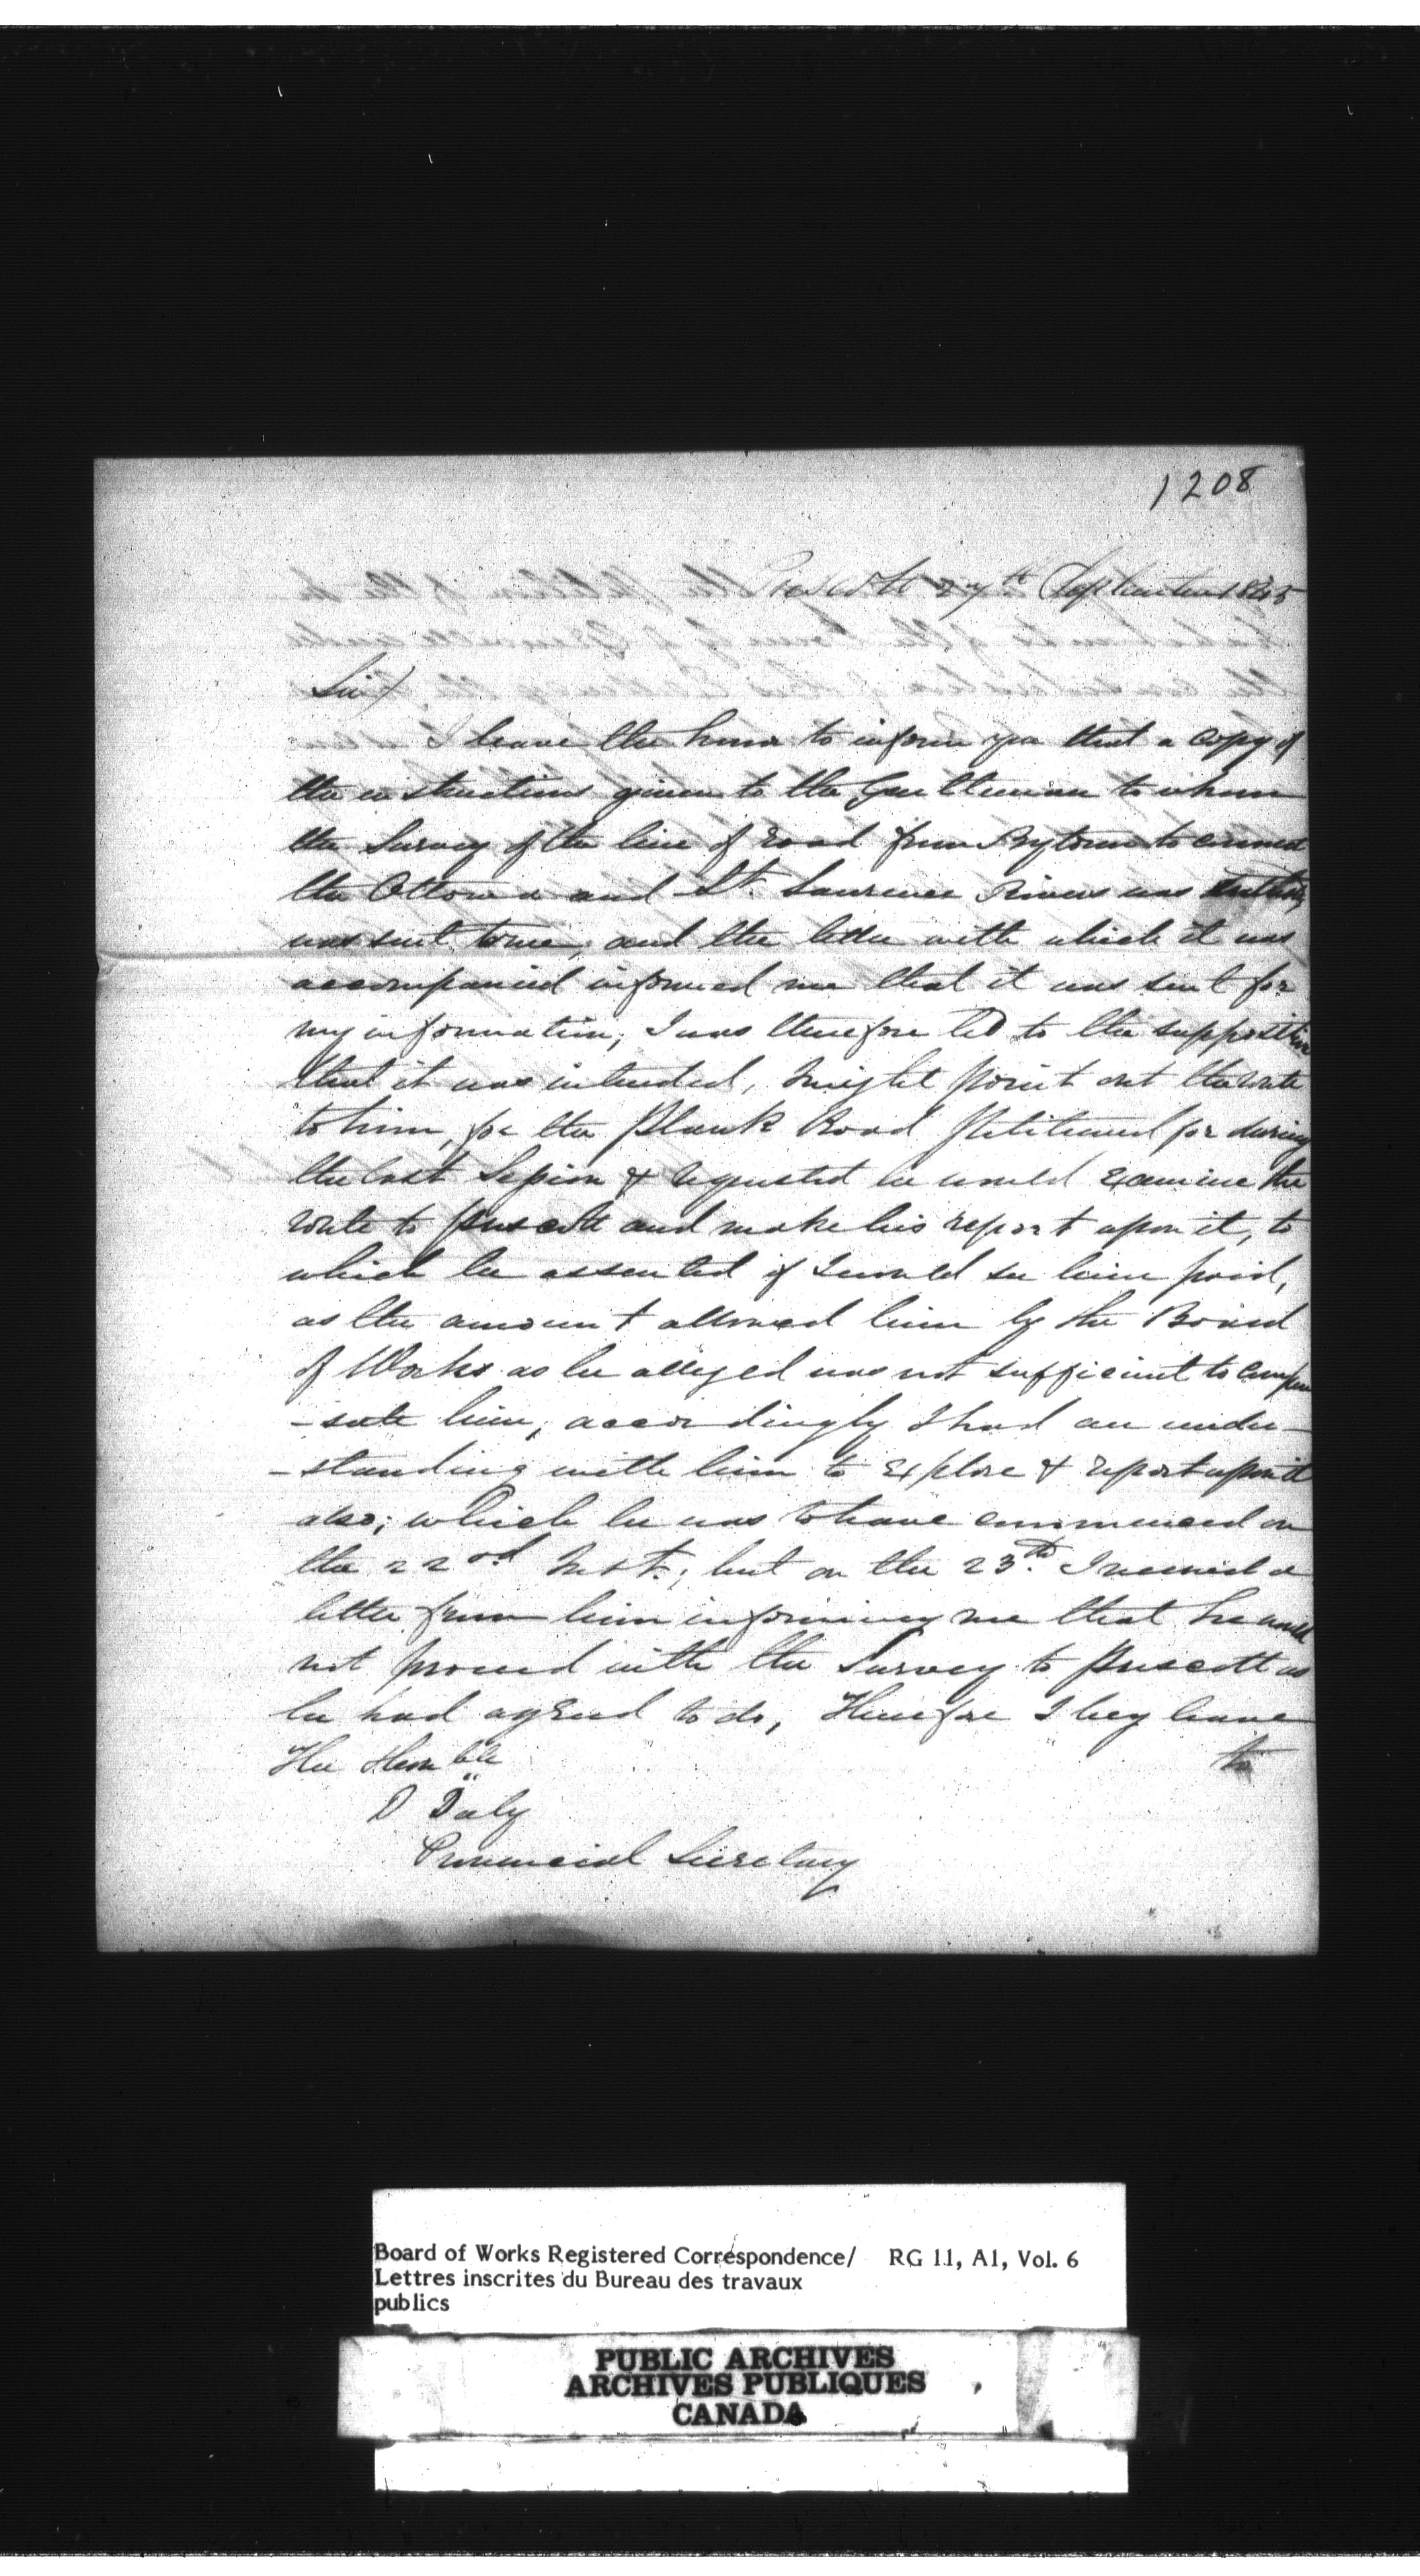 1208
Prescott 27th September 1845
Sir,
I have the honor to inform you that a copy of
the instructions given to the Gentleman to whom
the Survey of the line of road from Bytown to connect
the Ottowa and St. Lawrence Rivers was
was sent to me, and the letter with which it was
accompanied informed me that it was sent for
my information; I was therefore led to the supposition
that it was intended, I might point out the route
to him, for the Plank Road Petitioned for during
the last Session & requested he would examine the
route to Prescott and make his report upon it, to
which he assented if I would see him paid,
as the amount allowed him by the Board
of Works as he alleged was not sufficient to compen
-sate him, accordingly I had an under-
-standing with him to explore & report upon it
also; which he was to have commenced on
the 22nd Inst.; but on the 23rd. I received a
letter from him informing me that he would
not proceed with the Survey to Prescott as
he had agreed to do, Therefore I beg leave
to
The Honble
D Daly
Provincial Secretary
Board of Works Registered Correspondence/ RG 11, A1, Vol. 6
Lettres inscrites du Bureau des travaux
publics
PUBLIC ARCHIVES
ARCHIVES PUBLIQUES
CANADA